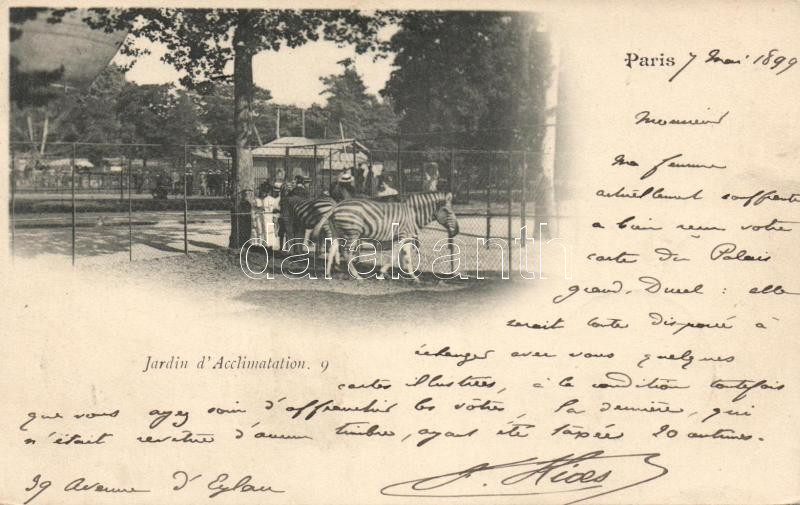 Paris 7 Mai 1899
Monsieur
Ma femme
actuellement souffrante
a bien reçu votre
carte du Palais
grand-Ducal : elle
serait toute disposée à
échanger avec vous quelques
cartes illustrées, à la condition toutefois
que vous ayez soin d'affranchir les vôtres, la dernière, qui
n'était revêtue d'aucun timbre, ayant été taxée 20 centimes.
39 Avenue d'Eylau
Jardin d'Acclimatation. 9
darabanth